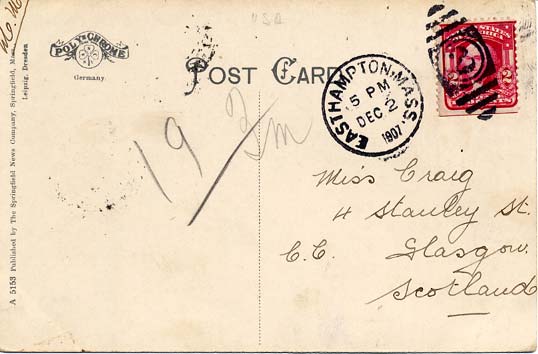 USA
POLY-CHROME
Germany
POST CARD
EASTHAMPTON, MASS.
5 PM
DEC 2
1907
2 2
19/
Miss Craig
4 Stanley St.
C.C. Glasgow
Scotland
A 5153 Published by The Springfield News Company, Springfield, Mass.
Leipzig, Dresden